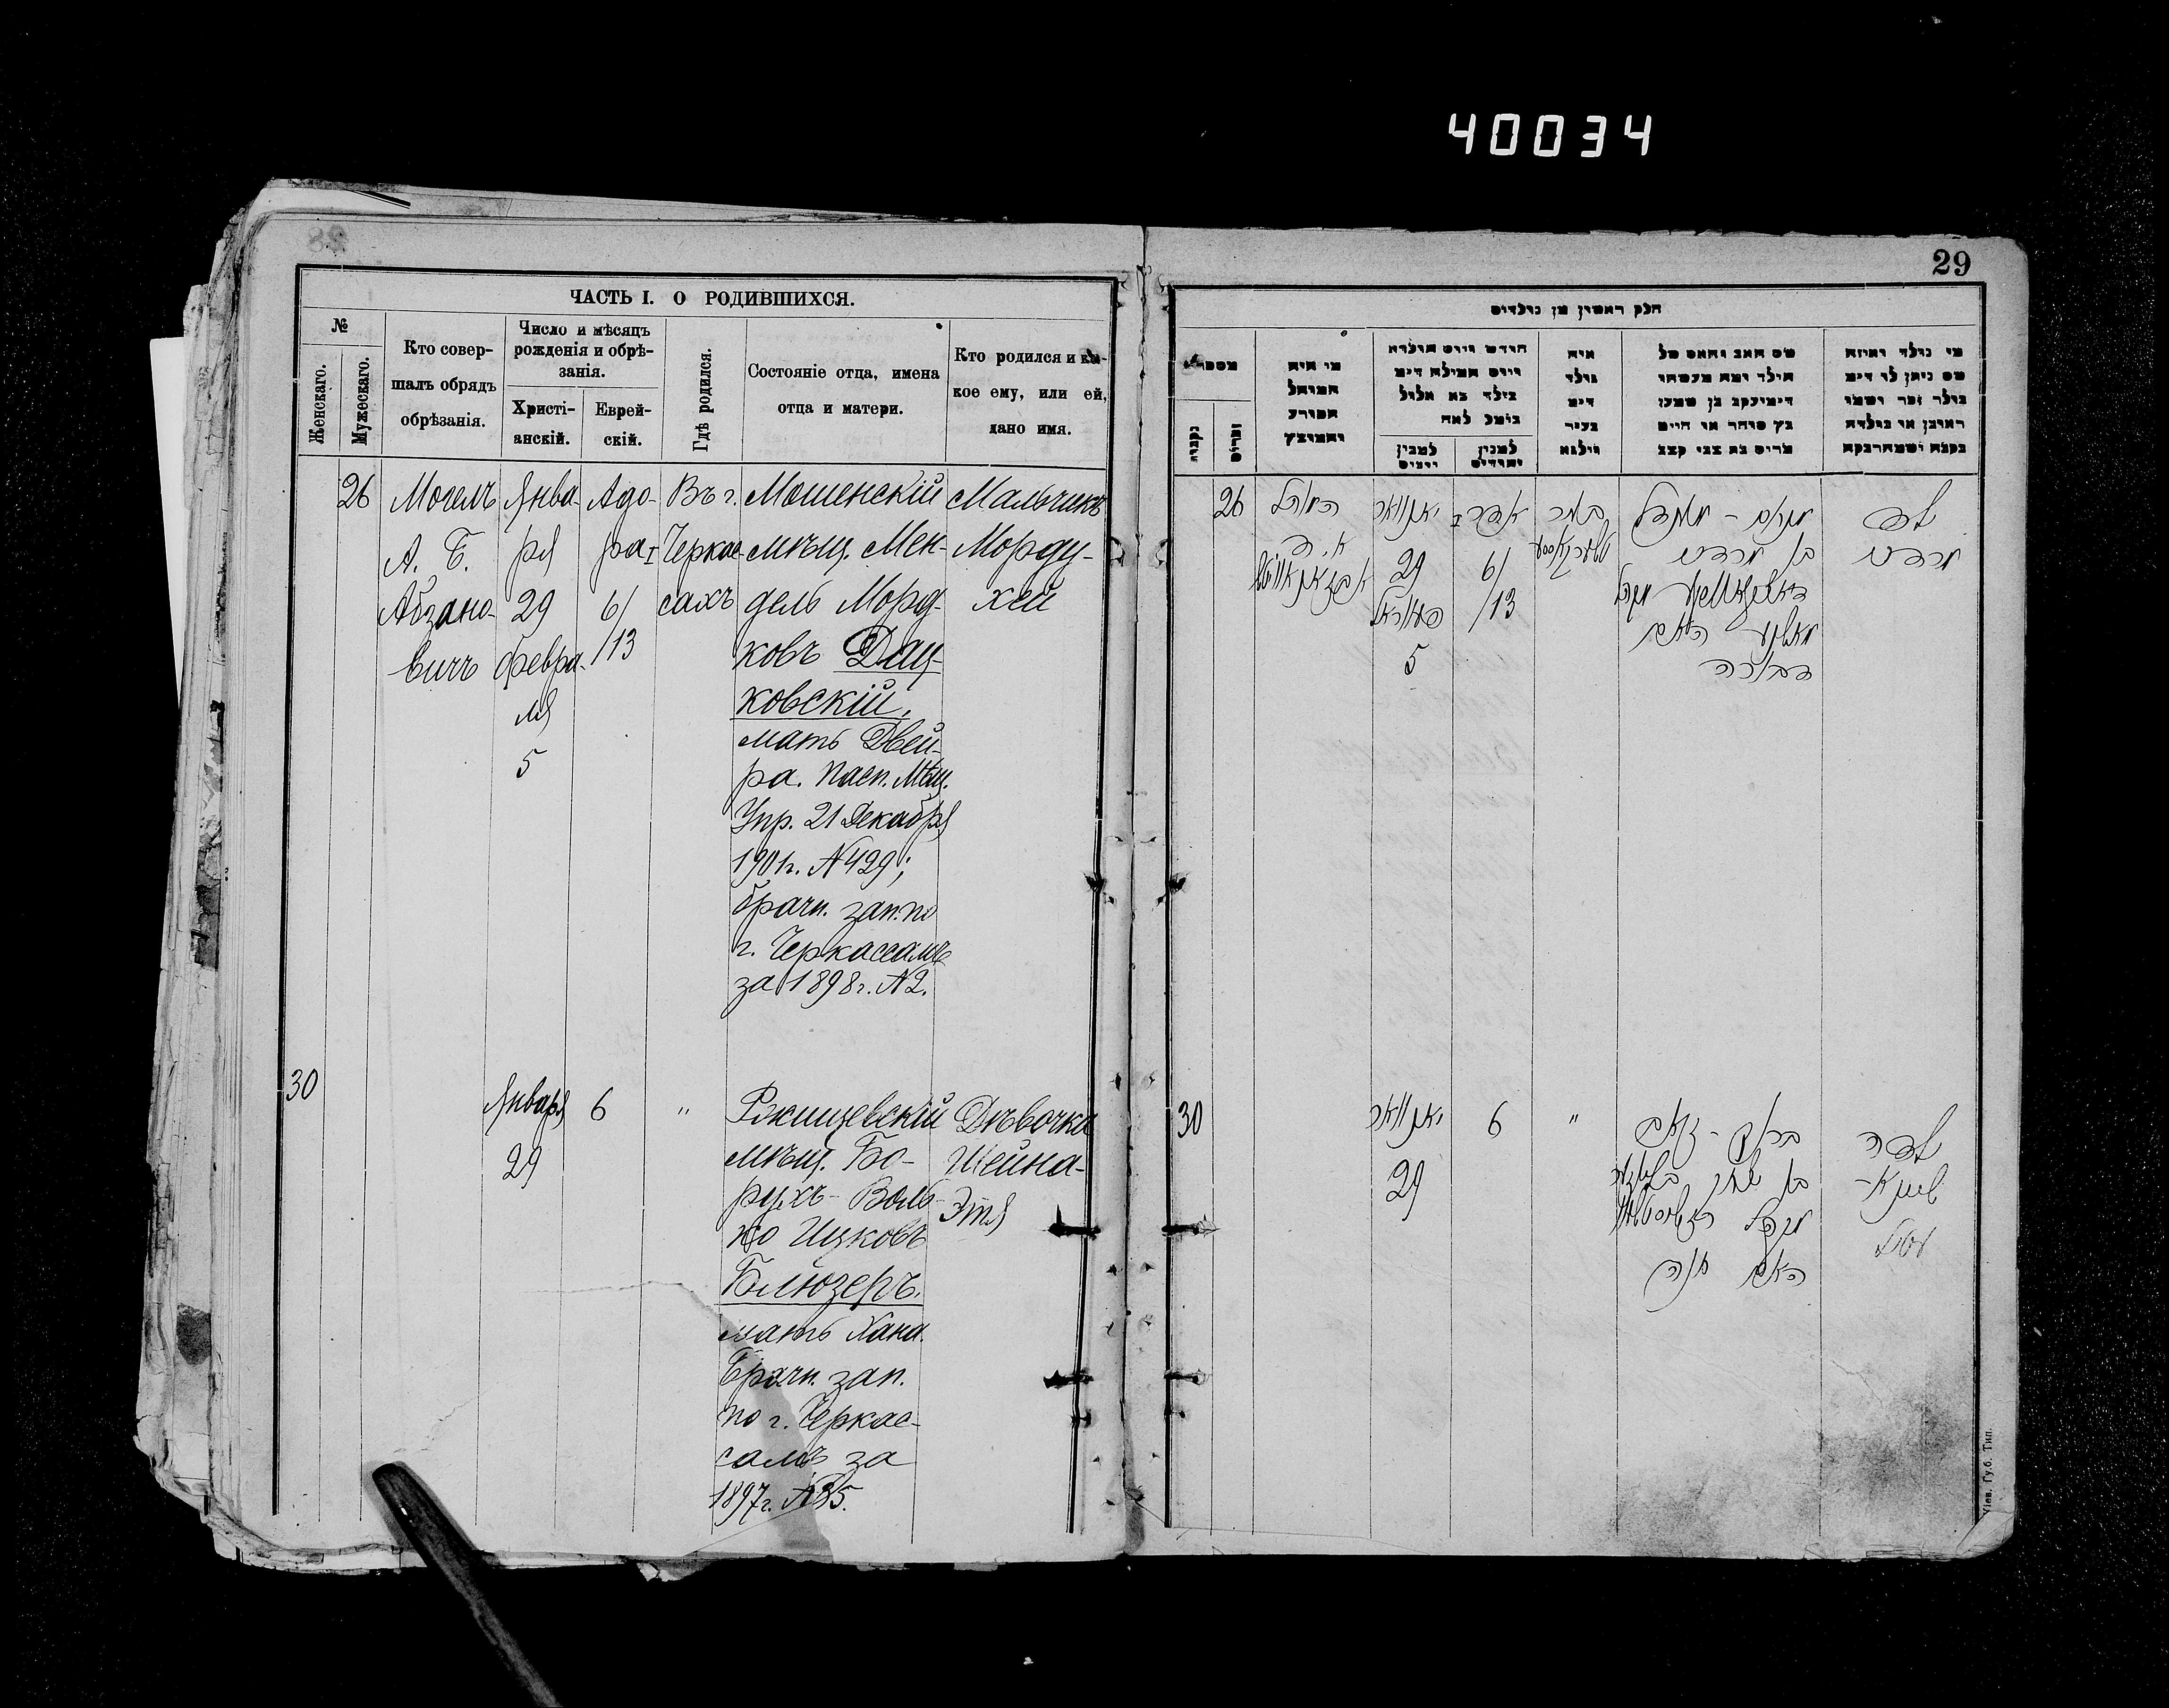 40034
ЧАСТЬ I. О РОДИВШИХСЯ.
№
Женскаго.
Мужескаго.
Кто совер-
шалъ обрядъ
обрѣзанія.
Число и мѣсяцъ
рожденія и обрѣ-
занія.
Христі-
анскій.
Еврей-
скій.
Гдѣ родился.
Состояніе отца, имена
отца и матери.
Кто родился и ка-
кое ему, или ей,
дано имя.
26
Могелъ
А. Б.
Абзано-
вичъ
Янва-
ря
29
февра-
ля
5
Адо-
ра I
6/
/13
Въ г.
Черкас-
сахъ
Мошенскій
мѣщ. Мен-
дель Морд-
ковъ Дац-
ковскій,
мать Двей-
ра. Пасп. Мѣщ.
Упр. 21 Декабря
1901г. №429;
брачн. зап. по
г. Черкассамъ
за 1898г. №2.
Мальчикъ
Морду-
хей
30
Января
29
6
"
Ржищевскій
мѣщ. Бо-
рухъ-Воль-
ко Ицковъ
Блюзеръ.
мать Хана.
Брачн. зап.
по г. Черкас-
самъ за
1897г. №35.
Дѣвочка
Шейна-
Этя
29
חלק ראשון מן נולדים
מספר
נקבות
זכרים
מי היה
המוהל
חודש ויום הולדת
ויום המילה
למנין
למנין
איה
נולד
שם האב והאם של
הילד
מי נולד ואיזה
שם ניתן לו
26
המוהל
א. ב.
יאנוואר
29
פעווראל
5
אדר I
6/
/13
בן מרדכי
האם
דבורה
זכר
מרדכי
30
יאנוואר
29
6
"
האם חנה
נקבה
שיינא-
Кіев. Губ. Тип.